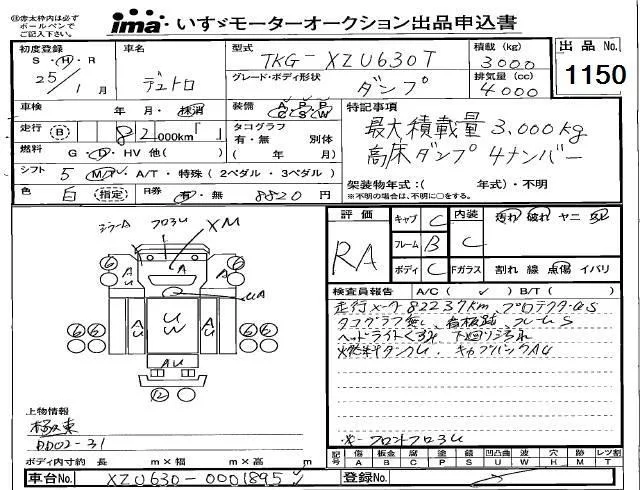 ※赤太枠内は必ず
ボールペンで
ご記入下さい。
ima いすゞモーターオークション出品申込書
初度登録
S・H・R
25年1月
車名
デュトロ
型式
TKG-XZU630T
グレード・ボディ形状
ダンプ
積載(kg)
3000
排気量(cc)
4000
出品No.
1150
車検
年・月・抹消
走行 B
82,000km「」
燃料
G・D・HV 他( )
シフト
5 M/T A/T・特殊(2ペダル・3ペダル)
色
白 (指定)
R券
有・無 8820円
装備
A/C P/S P/W
タコグラフ
有・無 別体
( 年/ 月)
特記事項
最大積載量 3,000kg
高床ダンプ 4ナンバー
架装物年式:( 年式)・不明
※不明の場合は、不明に○をする。
フロ3U
XM
A
UA
AU
UW
AU
6
6
6
6
12
上物情報
極東
DD02-31
ボディ内寸約 長 m×幅 m×高 m
車台No.
XZU630-0001895
評価
RA
キャブ C
フレーム B
ボディ C
内装
C
汚れ 破れ ヤニ
Fガラス
割れ 線 点傷 イバリ
検査員報告
A/C( ✓ ) B/T( )
走行メーター82237km、プロテクターUS
タコグラフ無し、看板跡、フレームS
ヘッドライトくもり 下回り汚れ
燃料タンクU、キャブバックAU
フロントフロ3U
記号
傷 A
板金 B
腐 C
塗 P
錆 S
凹凸曲 U
波 W
穴 H
跡 M
レツ割 T
登録No.